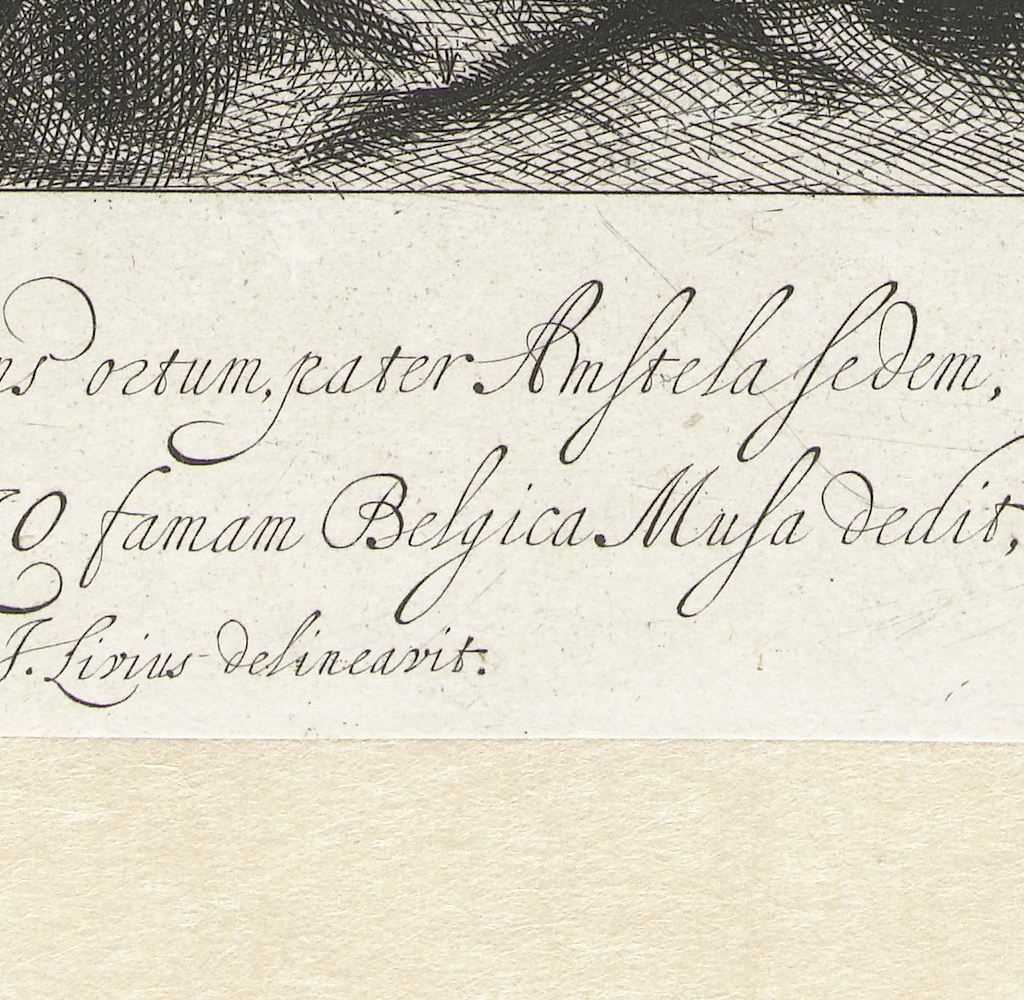 ns ortum, pater Amstela sedem,
O famam Belgica Musa dedit,
J. Livius delineavit.